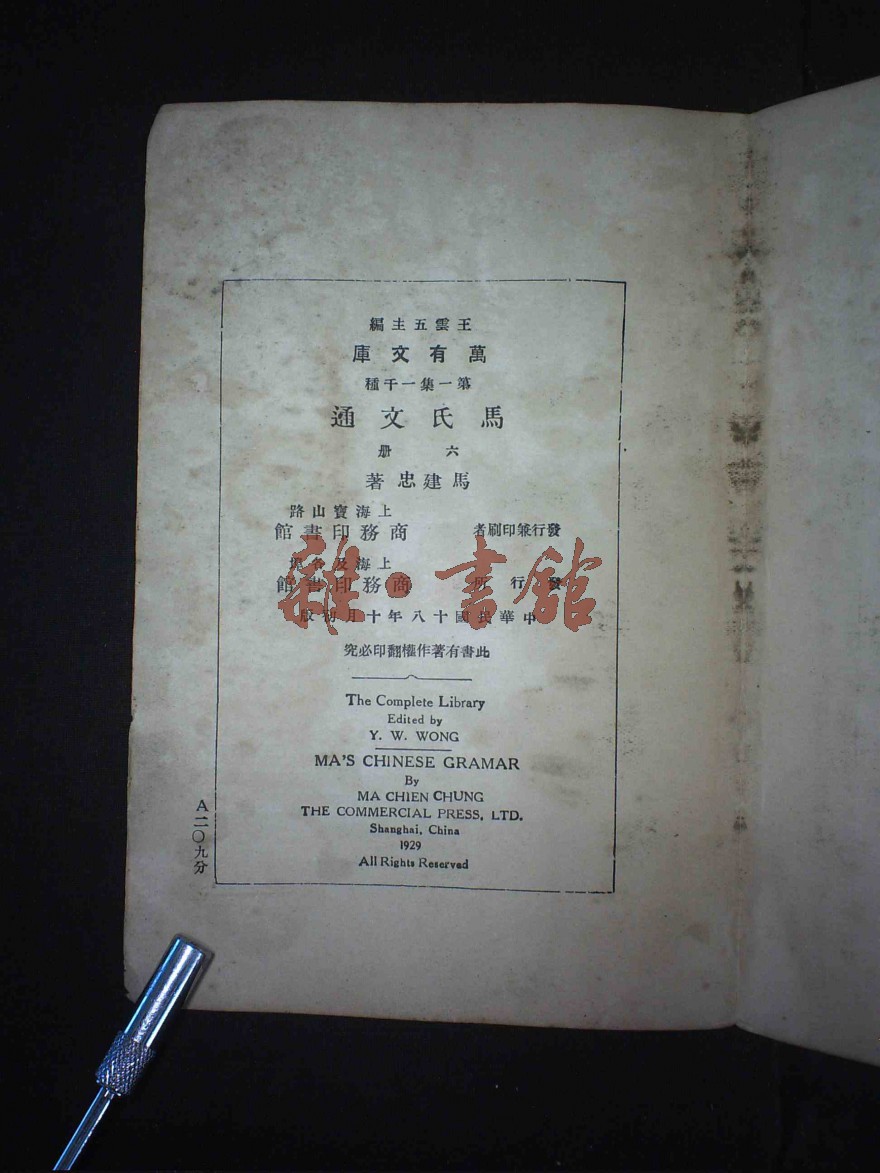 王雲五主編
萬有文庫
第一集一千種
馬氏文通
六册
馬建忠著
上海寶山路
發行兼印刷者 商務印書館
上海及各埠
發行所 商務印書館
中華民國十八年十月初版
此書有著作權翻印必究
The Complete Library
Edited by
Y. W. WONG
MA'S CHINESE GRAMAR
By
MA CHIEN CHUNG
THE COMMERCIAL PRESS, LTD.
Shanghai, China
1929
All Rights Reserved
A二〇九分
雜·書館